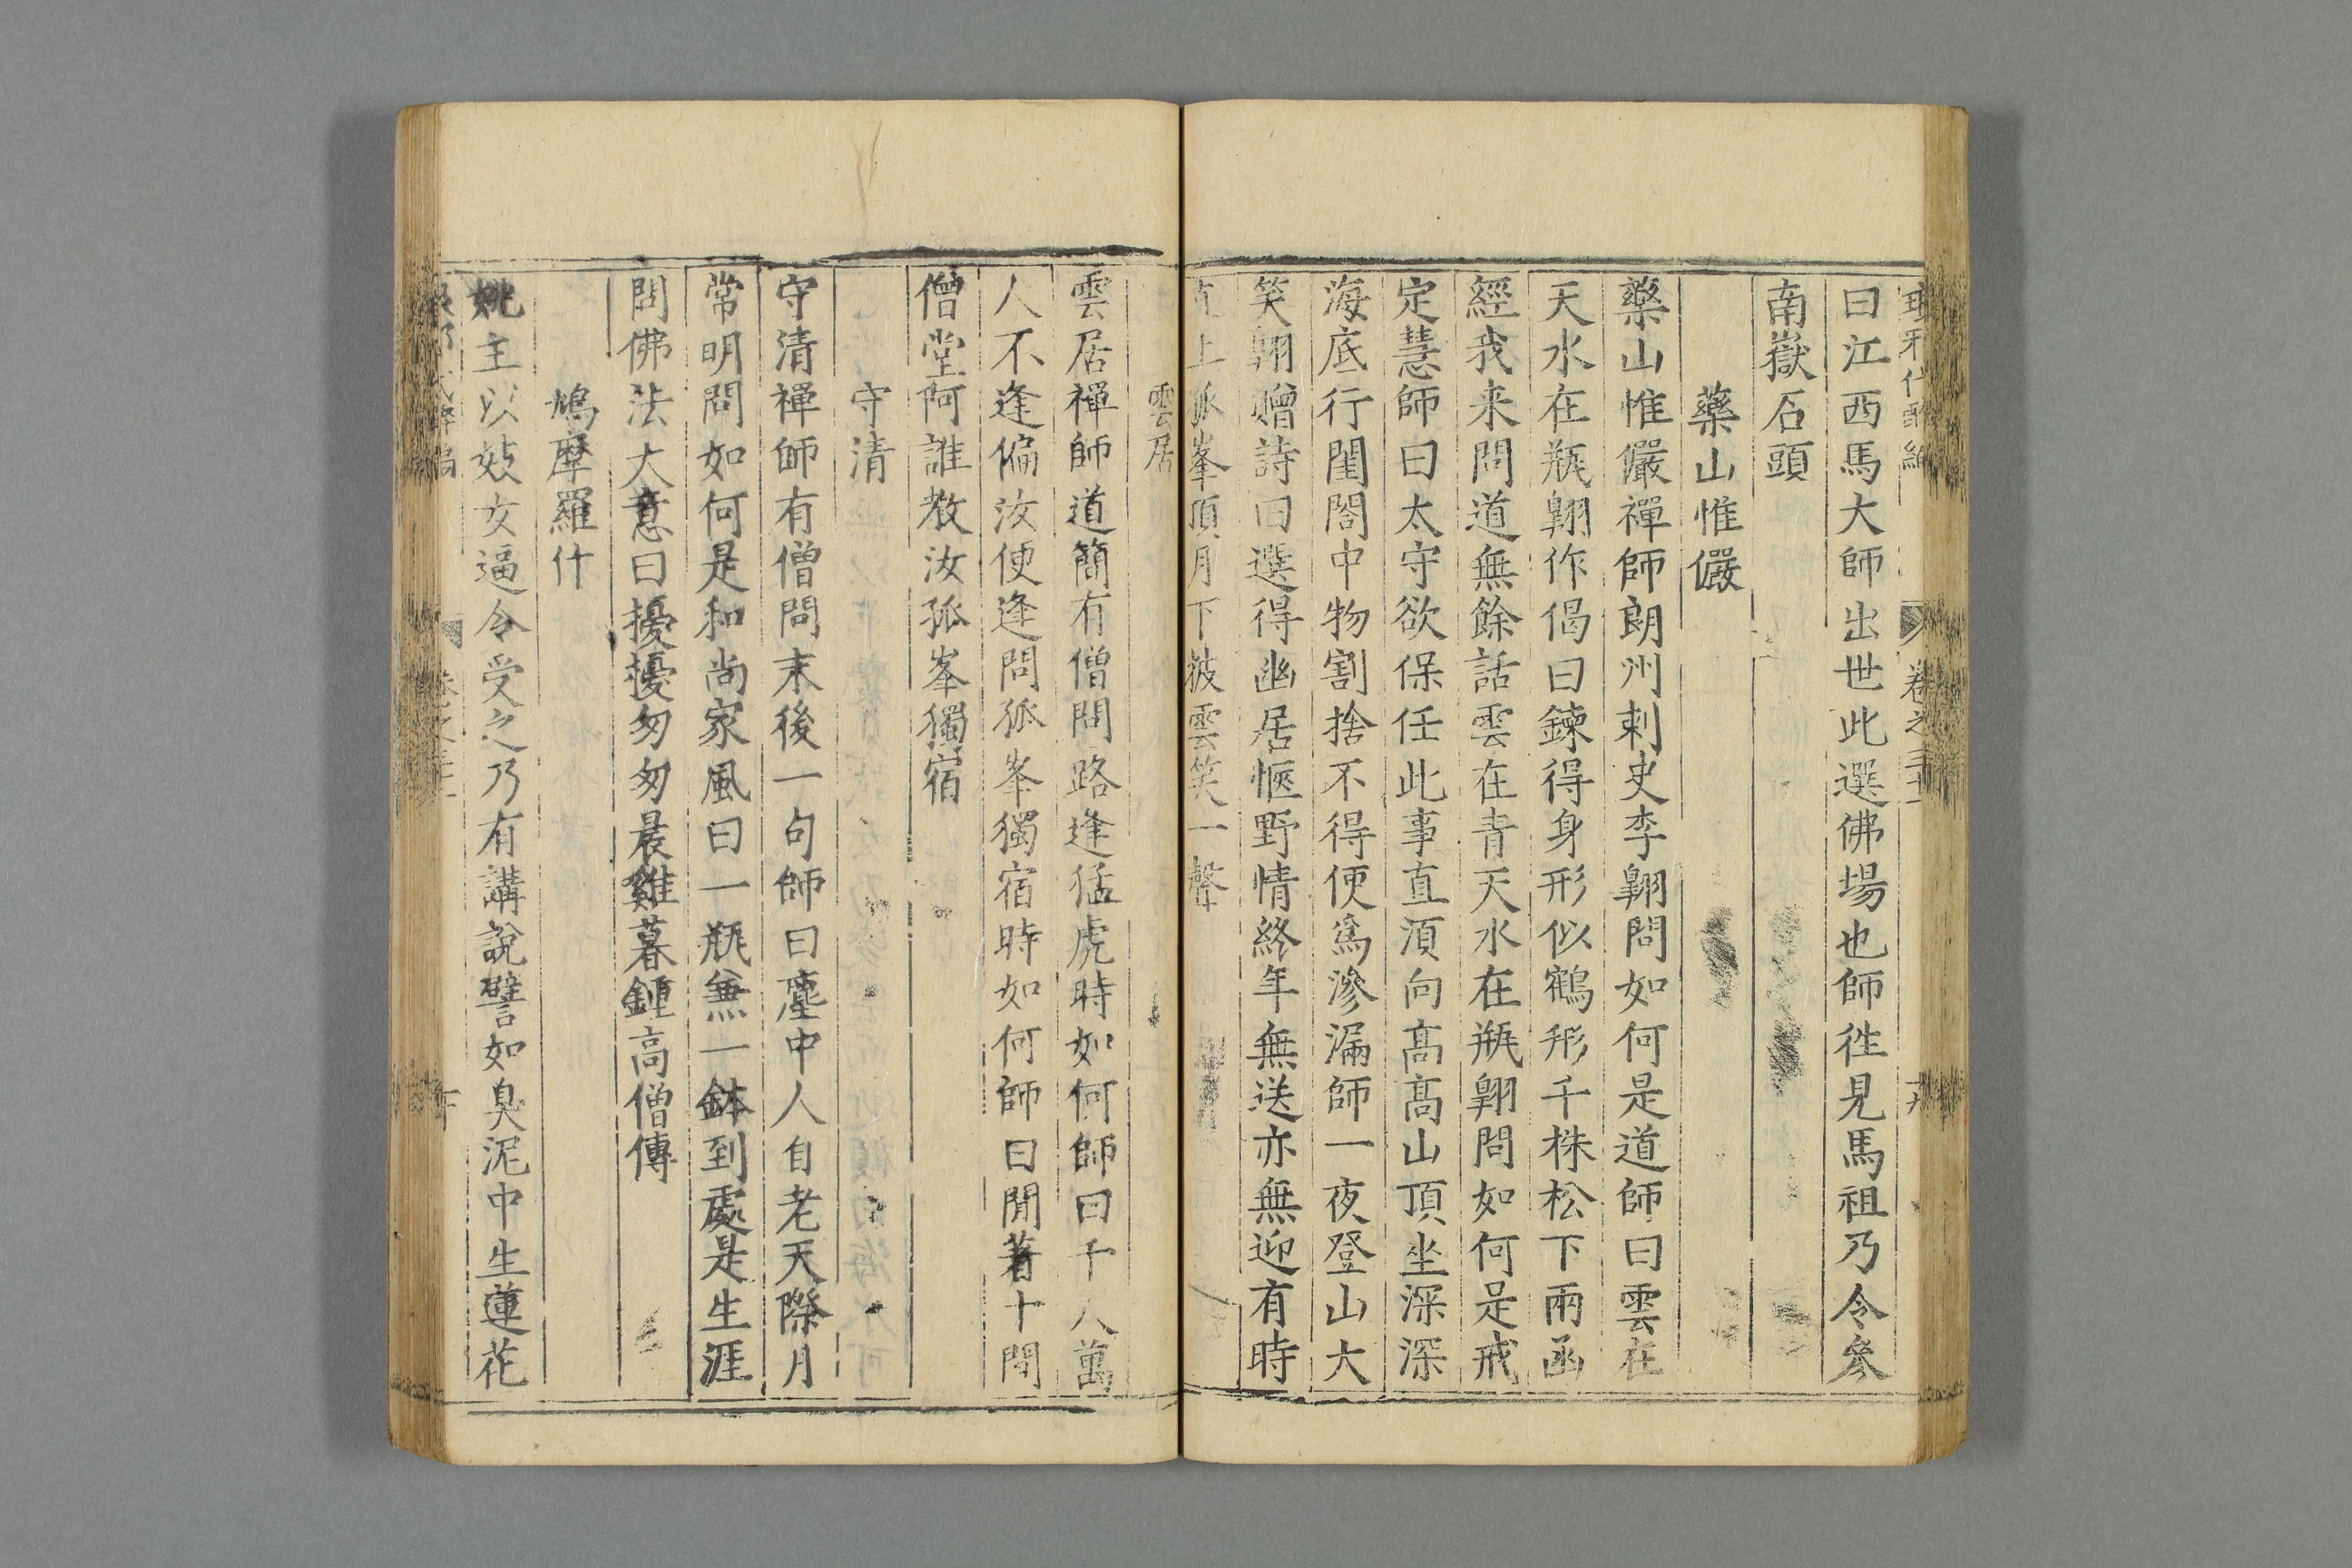 曰江西馬大師出世此選佛場也師徃見馬祖乃令叅
南嶽石頭
藥山惟儼
藥山惟儼禪師朗州刺史李翺問如何是道師曰雲在
天水在瓶翺作偈曰鍊得身形似鶴形千株松下兩函
經我来問道無餘話雲在青天水在瓶翺問如何是戒
定慧師曰太守欲保任此事直湏向髙髙山頂坐深深
海底行閨閤中物割捨不得便爲滲漏師一夜登山大
笑翺贈詩曰選得幽居愜野情終年無送亦無迎有時
上孤峯頂月下披雲笑一聲
雲居
雲居禪師道簡有僧問路逢猛虎時如何師曰千人萬
人不逢偏汝便逢問孤峯獨宿時如何師曰閒著十間
僧堂阿誰教汝孤峯獨宿
守清
守清禪師有僧問末後一句師曰塵中人自老天際月
常明問如何是和尚家風曰一瓶兼一鉢到處是生涯
問佛法大意曰擾擾匆匆晨雞暮鍾高僧傳
鳩摩羅什
姚主以妓女逼令受之乃有講說譬如臭泥中生蓮花